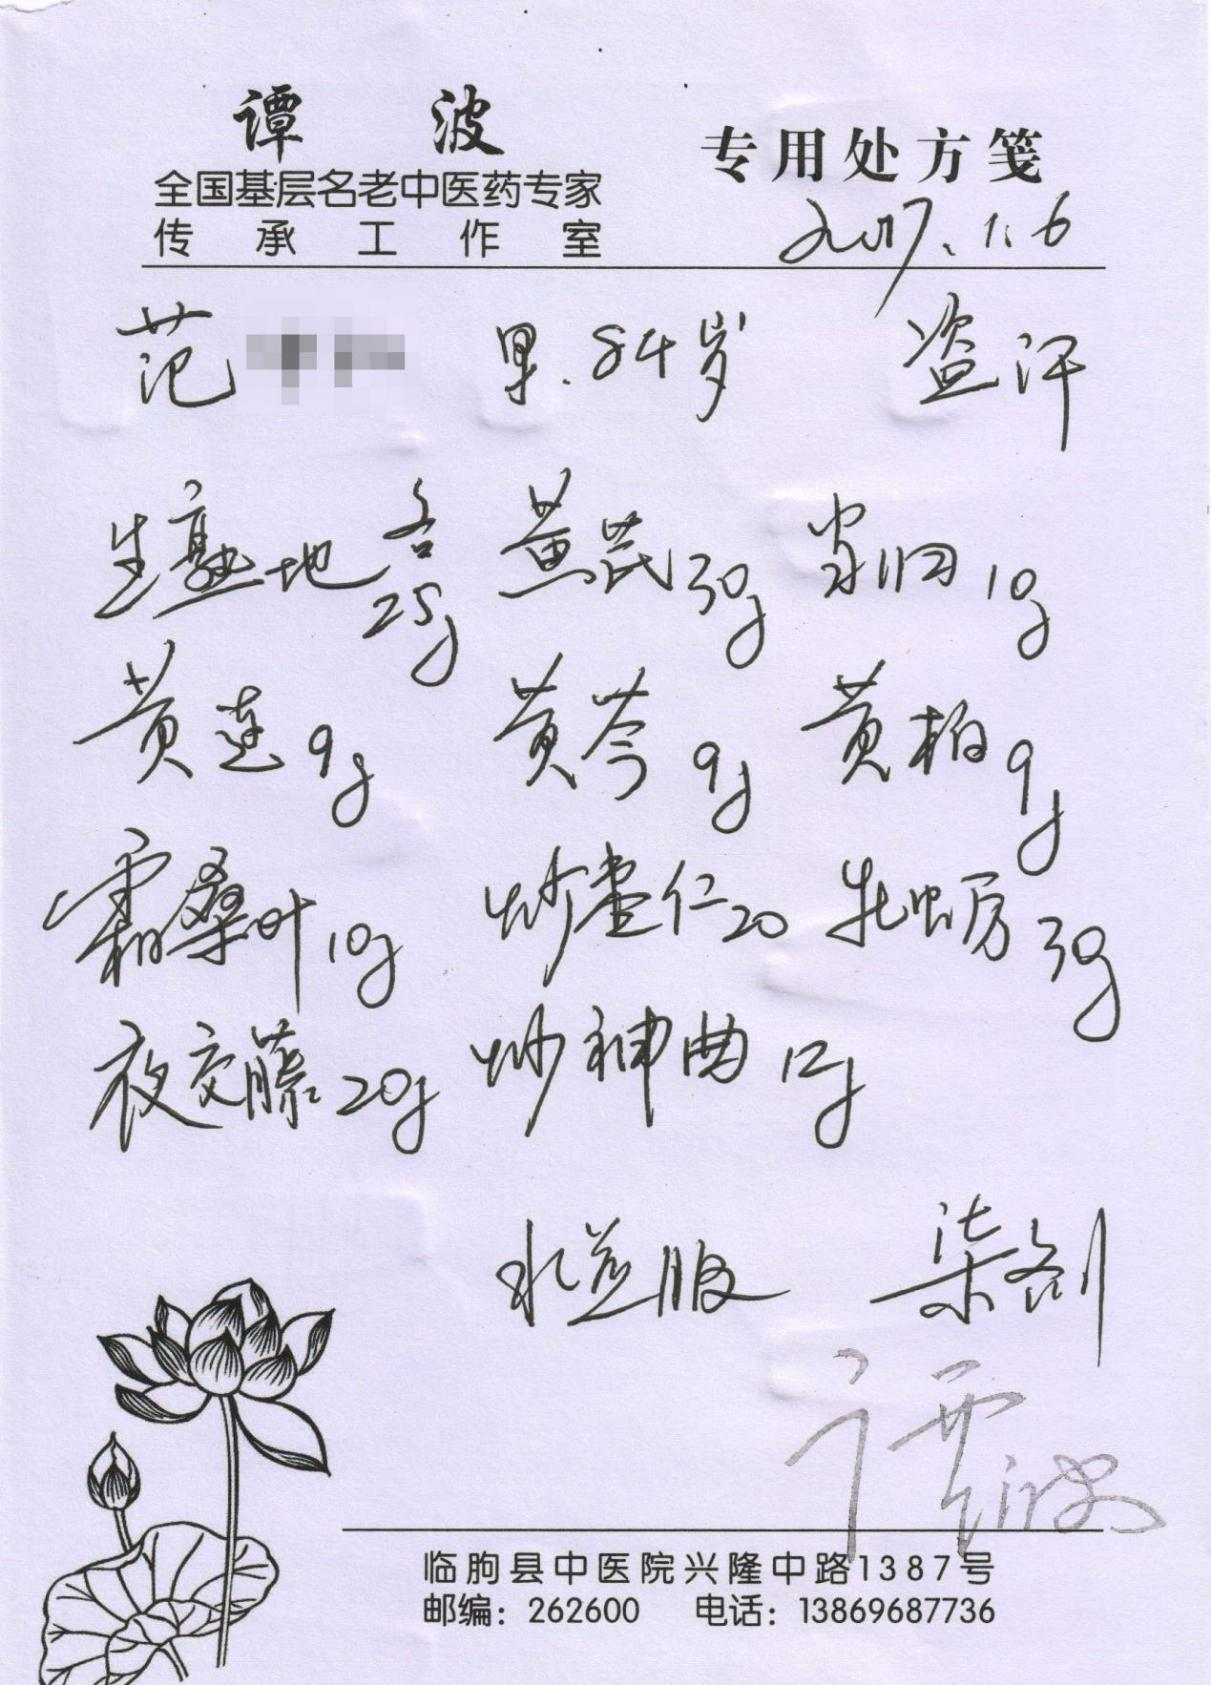 谭波
专用处方笺
全国基层名老中医药专家
传承工作室
2017.1.6
范 男.84岁 盗汗
生熟地各25g 黄芪30g 当归10g
黄连9g 黄芩9g 黄柏9g
霜桑叶10g 炒枣仁20 牡蛎30g
夜交藤20g 炒神曲12g
水煎服 柒剂
谭波
临朐县中医院兴隆中路1387号
邮编：262600 电话：13869687736